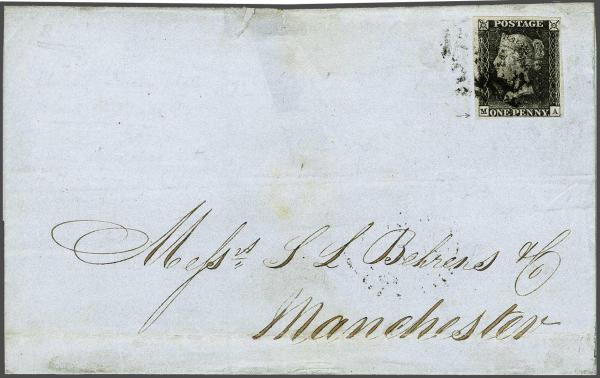 POSTAGE
M ONE PENNY A
Messrs S. L. Behrens & Co
Manchester